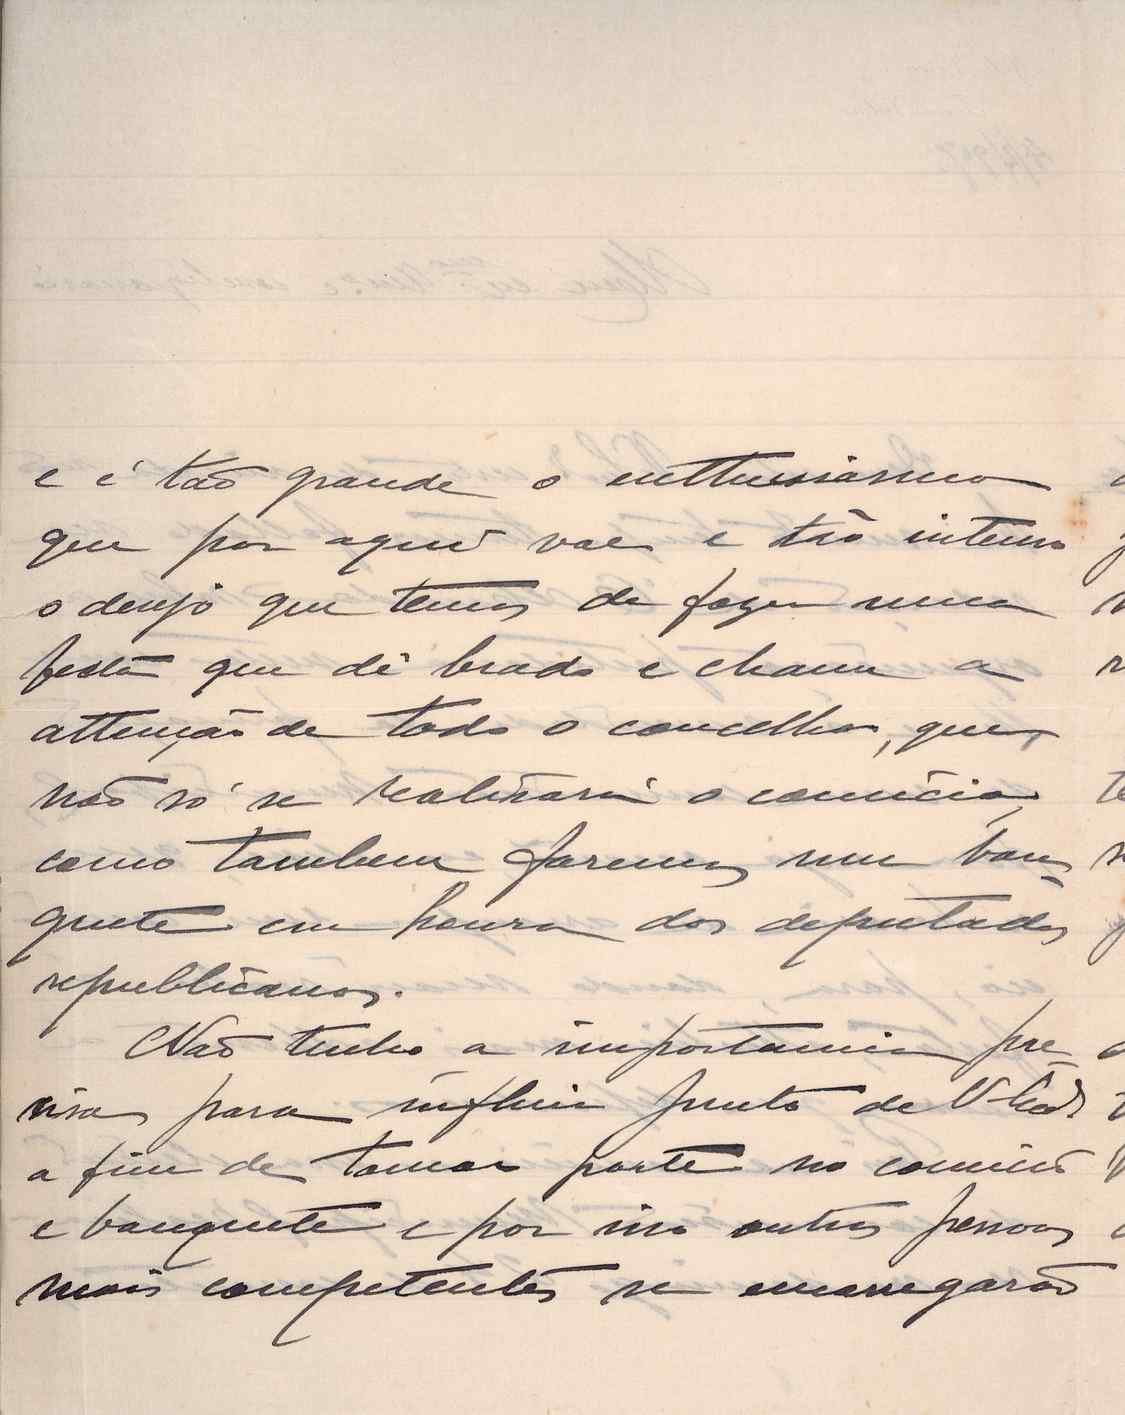 e é tão grande o enthusiasmo
que por aqui vae e tão intenso
o desejo que temos de fazer uma
festa que dê brado e chame a
attenção de todo o concelho, que,
não só se realisará o comicio,
como tambem faremos um ban-
quete em honra dos deputados
republicanos.
Não tenho a importancia pre-
cisa para influir junto de V. Ex.ª
a fim de tomar parte no comicio
e banquete e por isso outras pessoas
mais competentes se encarregarão